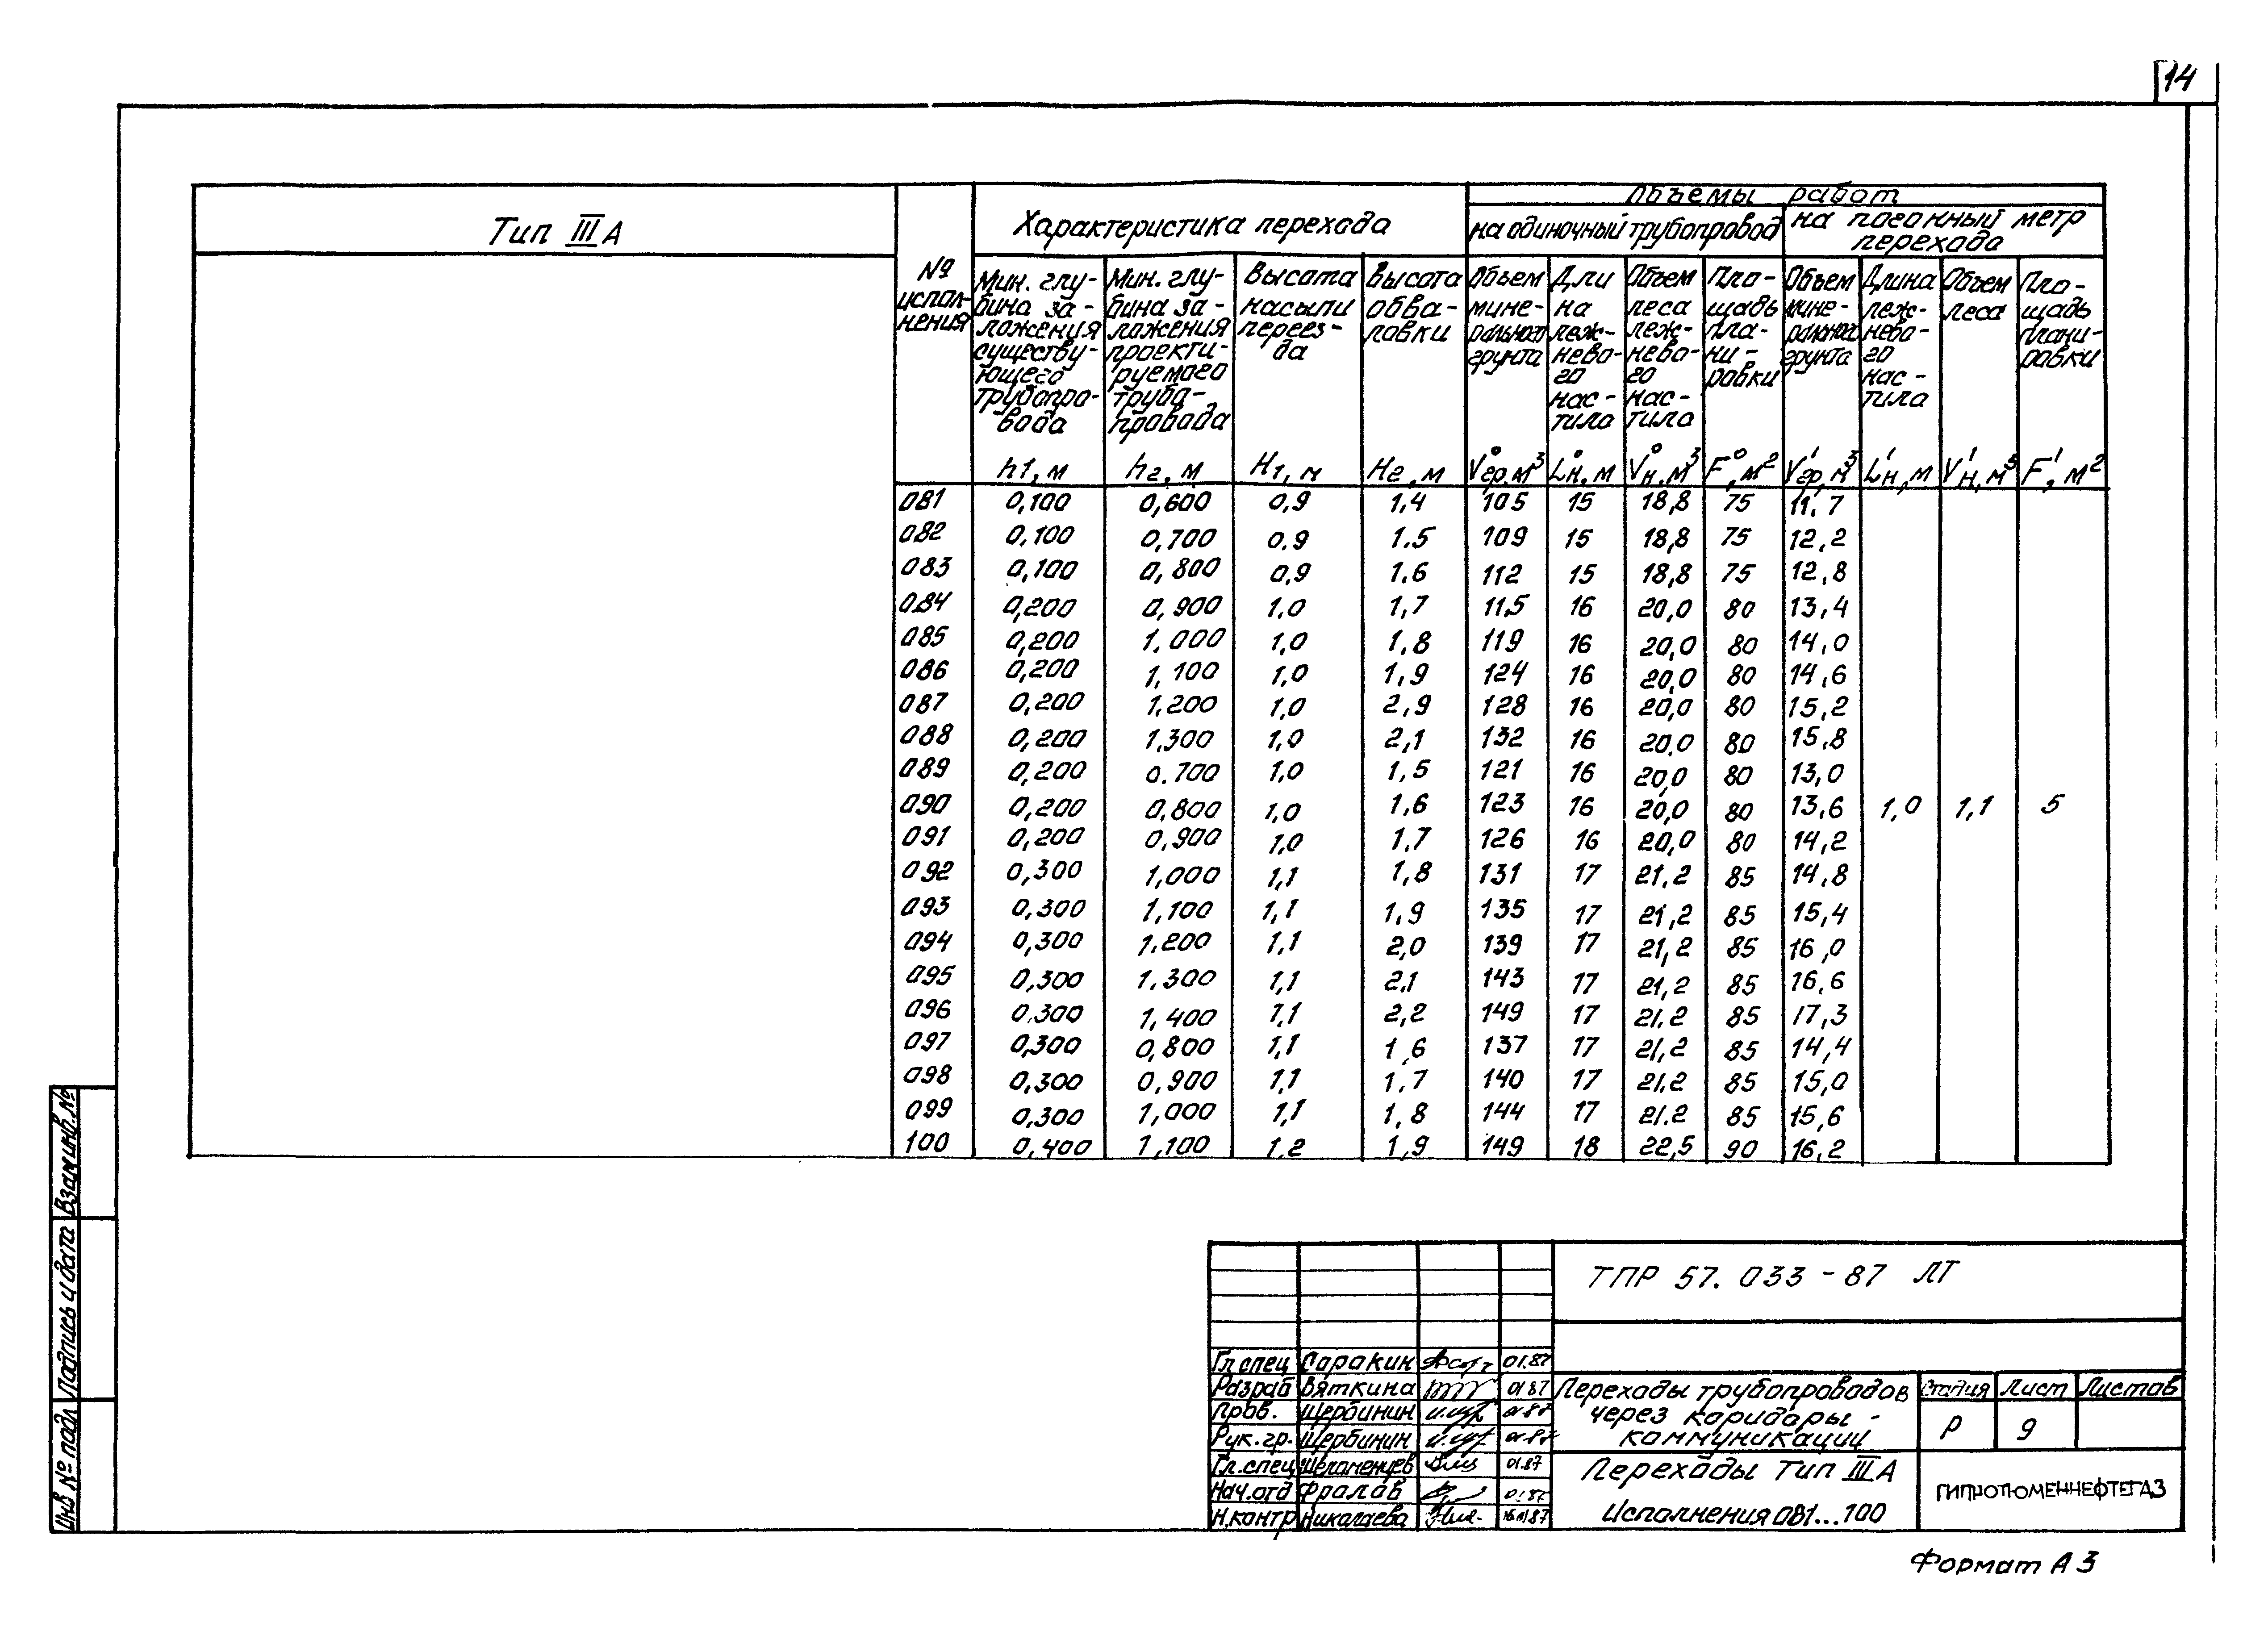 14
Тип III А
№ исполнения
Характеристика перехода
Объемы работ
на одиночный трубопровод
на погонный метр перехода
Мин. глубина заложения существующего трубопровода h1, м
Мин. глубина заложения проектируемого трубопровода h2, м
Высота насыпи переезда H1, м
Высота обваловки H2, м
Объем минерального грунта V°гр, м³
Длина лежневого настила L°н, м
Объем леса лежневого настила V°н, м³
Площадь планировки F°, м²
Объем минерального грунта V'гр, м³
Длина лежневого настила L'н, м
Объем леса V'н, м³
Площадь планировки F', м²
081 0,100 0,600 0,9 1,4 105 15 18,8 75 11,7
082 0,100 0,700 0.9 1.5 109 15 18,8 75 12,2
083 0,100 0,800 0,9 1,6 112 15 18,8 75 12,8
084 0,200 0,900 1,0 1,7 115 16 20,0 80 13,4
085 0,200 1,000 1,0 1,8 119 16 20,0 80 14,0
086 0,200 1,100 1,0 1,9 124 16 20,0 80 14,6
087 0,200 1,200 1,0 2,9 128 16 20,0 80 15,2
088 0,200 1,300 1,0 2,1 132 16 20,0 80 15,8
089 0,200 0.700 1,0 1,5 121 16 20,0 80 13,0
090 0,200 0,800 1,0 1,6 123 16 20,0 80 13,6 1,0 1,1 5
091 0,200 0,900 1,0 1,7 126 16 20,0 80 14,2
092 0,300 1,000 1,1 1,8 131 17 21,2 85 14,8
093 0,300 1,100 1,1 1,9 135 17 21,2 85 15,4
094 0,300 1.200 1,1 2,0 139 17 21,2 85 16,0
095 0,300 1.300 1,1 2,1 143 17 21,2 85 16,6
096 0,300 1,400 1,1 2,2 149 17 21.2 85 17,3
097 0,300 0,800 1,1 1,6 137 17 21,2 85 14,4
098 0,300 0,900 1,1 1,7 140 17 21,2 85 15,0
099 0,300 1,000 1,1 1,8 144 17 21.2 85 15,6
100 0,400 1,100 1,2 1,9 149 18 22,5 90 16,2
Инв № подл Подпись и дата Взам инв. №
ТПР 57. 033 - 87 ЛТ
Гл спец Саракин 01.87
Разраб Вяткина 01 87
Пров. Щербинин 01.87
Рук. гр. Щербинин 01.87
Гл. спец Шеломенцев 01.87
Нач. отд Фролов 01.87
Н. контр Николаева 16.01.87
Переходы трубопроводов
через коридоры -
коммуникации
Стадия Лист Листов
Р 9
Переходы Тип III А
Исполнения 081...100
ГИПРОТЮМЕННЕФТЕГАЗ
Формат А 3